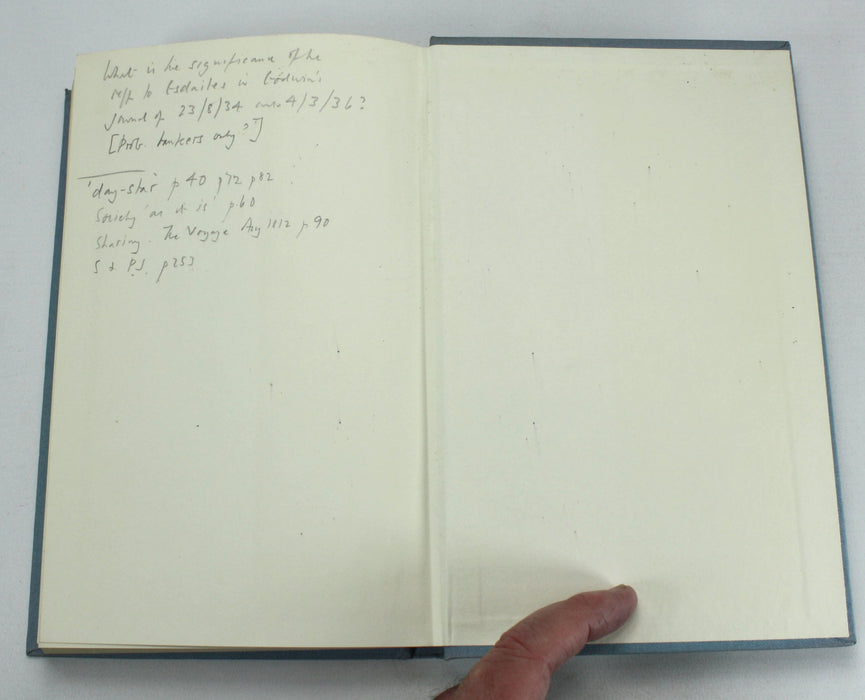 What is the significance of the
refs to Esdailes in Godwin's
Journal of 23/8/34 and 4/3/36?
[Prob. bankers only?]
'day-star' p40 p72 p82
Society 'as it is' p60
Sharing. The Voyage Aug 1812 p90
S & P.J. p253